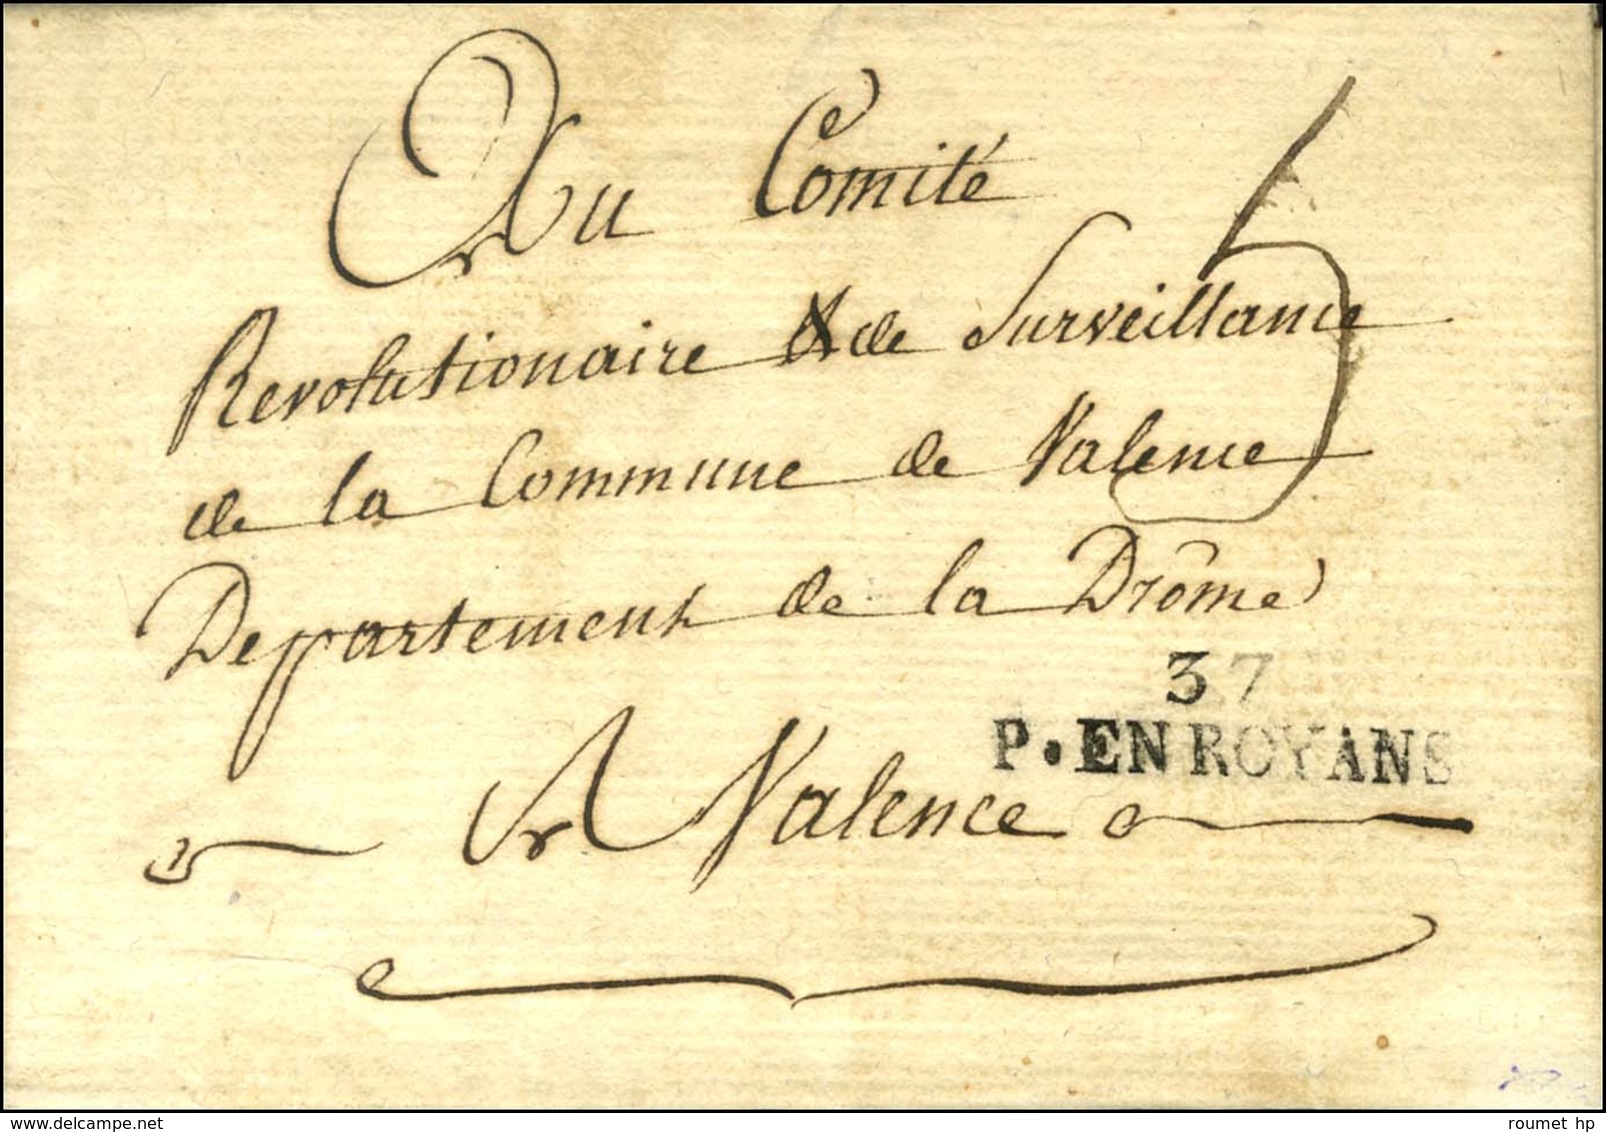 Au Comité
Revolutionaire & de Surveillance
de la Commune de Valence
Departement de la Drôme
5
37
P. EN ROYANS
A Valence
www.delcampe.net
roumet hp